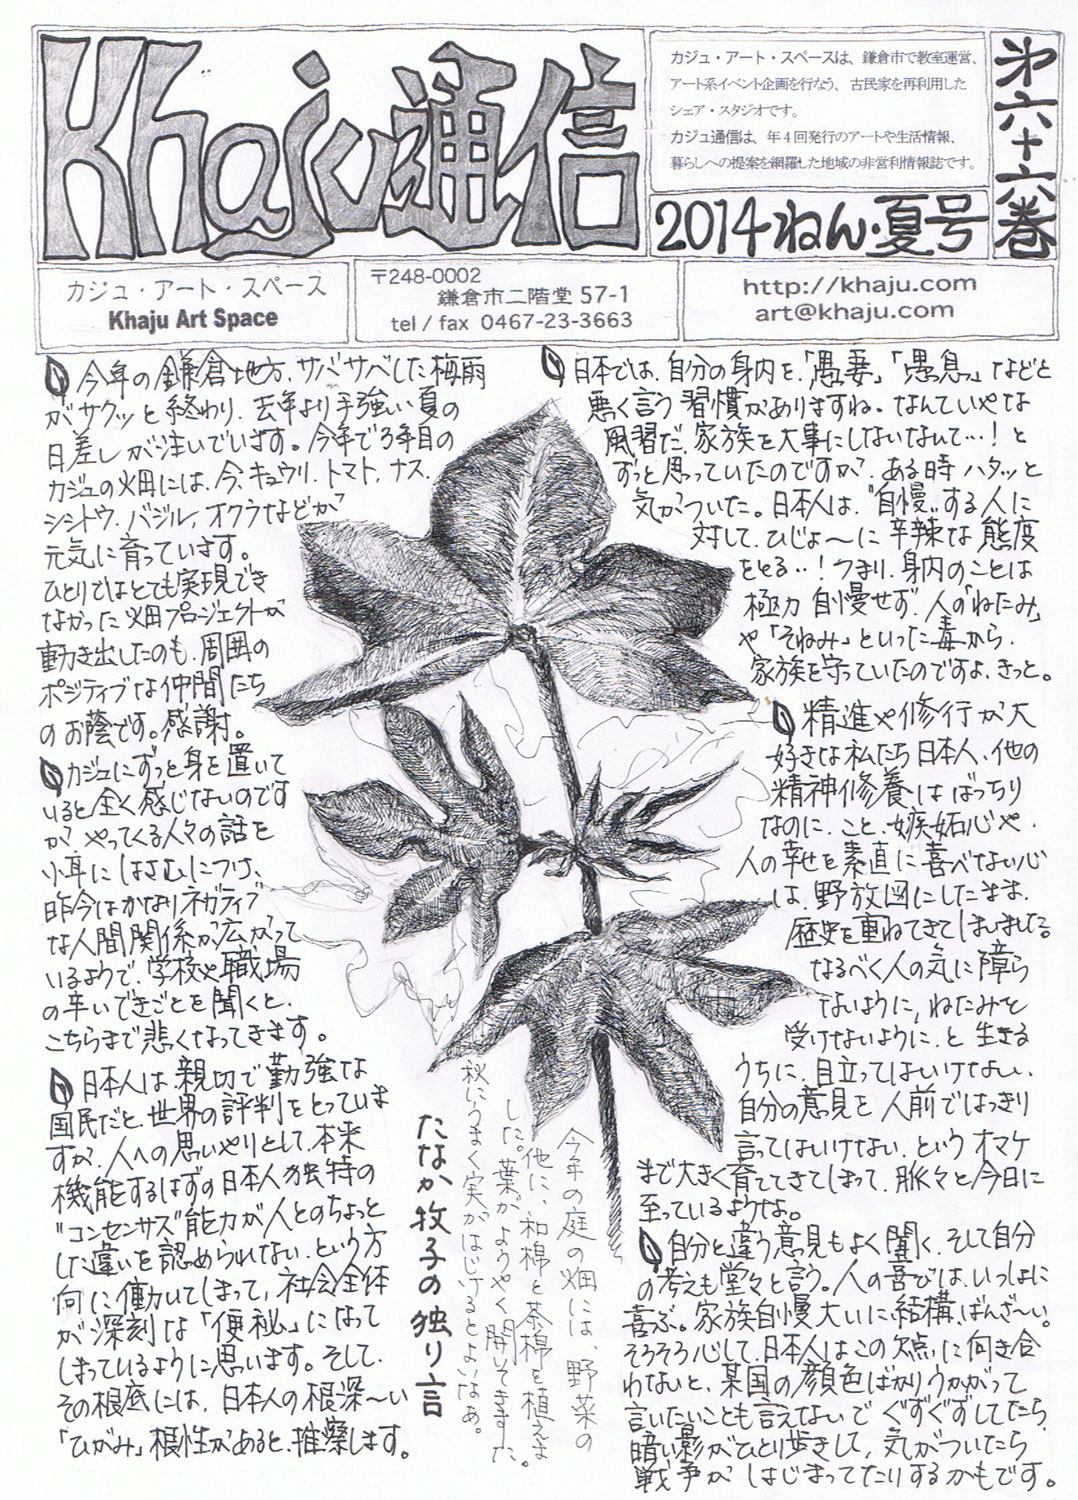 Khaju通信
カジュ・アート・スペースは、鎌倉市で教室運営、
アート系イベント企画を行なう、古民家を再利用した
シェア・スタジオです。
カジュ通信は、年4回発行のアートや生活情報、
暮らしへの提案を網羅した地域の非営利情報誌です。
2014ねん・夏号
第六十六巻
カジュ・アート・スペース
Khaju Art Space
〒248-0002
鎌倉市二階堂 57-1
tel / fax 0467-23-3663
http://khaju.com
art@khaju.com
今年の鎌倉地方、サバサバした梅雨
がサクッと終わり、去年より手強い夏の
日差しが注いでいます。今年で3年目の
カジュの畑には、今、キュウリ、トマト、ナス、
シシトウ、バジル、オクラなどが
元気に育っています。
ひとりではとても実現でき
なかった畑プロジェクトが
動き出したのも、周囲の
ポジティブな仲間たち
のお蔭です。感謝。
カジュにずっと身を置いて
いると全く感じないのです
が、やってくる人々の話を
小耳にはさむにつけ、
昨今はかなりネガティブ
な人間関係が広がって
いるようで、学校や職場
の辛いできごとを聞くと、
こちらまで悲くなってきます。
日本人は親切で勤強な
国民だと、世界の評判をとっていま
すが、人への思いやりとして、本来
機能するはずの日本人独特の
"コンセンサス"能力が人とのちょっと
した違いを認められない、という方
向に働いてしまって、社会全体
が深刻な「便秘」になって
しまっているように思います。そして、
その根底には、日本人の根深〜い
「ひがみ」根性があると、推察します。
日本では、自分の身内を、「愚妻」「愚息」などと
悪く言う習慣がありますね。なんていやな
風習だ、家族を大事にしないなんて…！と
ずっと思っていたのですが、ある時ハタッと
気がついた。日本人は、"自慢"する人に
対して、ひじょ〜に辛辣な態度
をとる…！つまり、身内のことは
極力自慢せず、人の「ねたみ」
や「そねみ」といった毒から、
家族を守っていたのですよ、きっと。
精進や修行が大
好きな私たち日本人、他の
精神修養はばっちり
なのに、こと、嫉妬心や、
人の幸せを素直に喜べない心
は、野放図にしたまま、
歴史を重ねてきてしまいました。
なるべく人の気に障ら
ないように、ねたみを
受けないように、と生きる
うちに、目立ってはいけない、
自分の意見を人前ではっきり
言ってはいけない、というオマケ
まで大きく育ててきてしまって、脈々と今日に
至っているようなよ。
自分と違う意見もよく聞く、そして自分
の考えも堂々と言う。人の喜びは、いっしょに
喜ぶ。家族自慢大いに結構、ばんざ〜い。
そろそろ心して、日本人はこの欠点に向き合
わないと、某国の顔色ばかりうかがって
言いたいことも言えないでぐずぐずしてたら、
暗い影がひとり歩きして、気がついたら
戦争がはじまってたりするかもです。
今年の庭の畑には、野菜の
他に、和棉と茶棉を植えま
した。葉がようやく開いてきました。
秋にうまく実がはじけるとよいなぁ。
たなか牧子の独り言